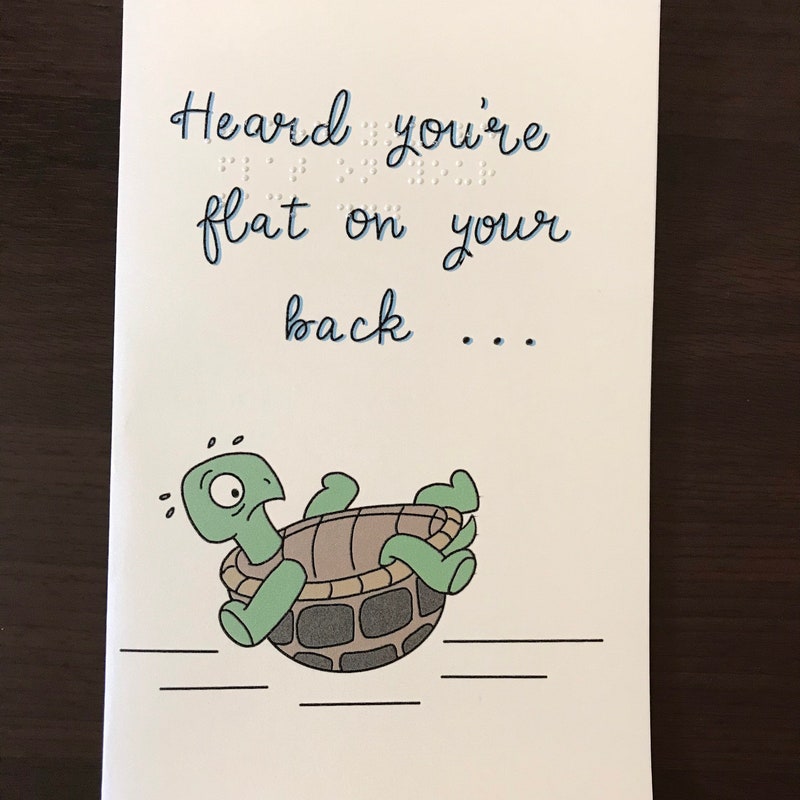 Heard you're
flat on your
back ...